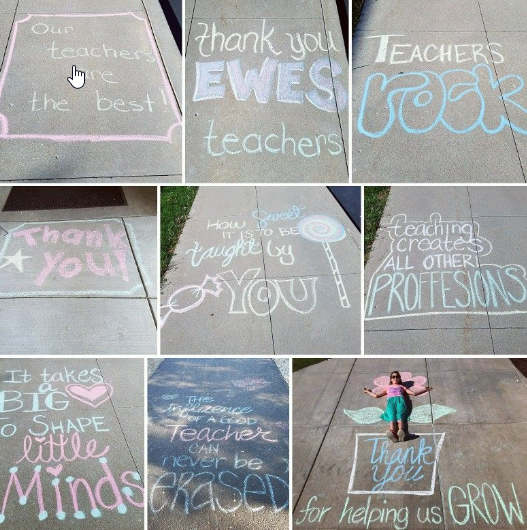 Our
teachers
are
the best!
thank you
EWES
teachers
TEACHERS
rock
Thank
you!
HOW Sweet
IT IS TO BE
taught by
YOU
teaching
creates
ALL OTHER
PROFFESIONS
It takes
a
BIG
TO SHAPE
little
Minds
THE
influence
OF A GOOD
Teacher
CAN
never be
erased
Thank
you
for helping us GROW